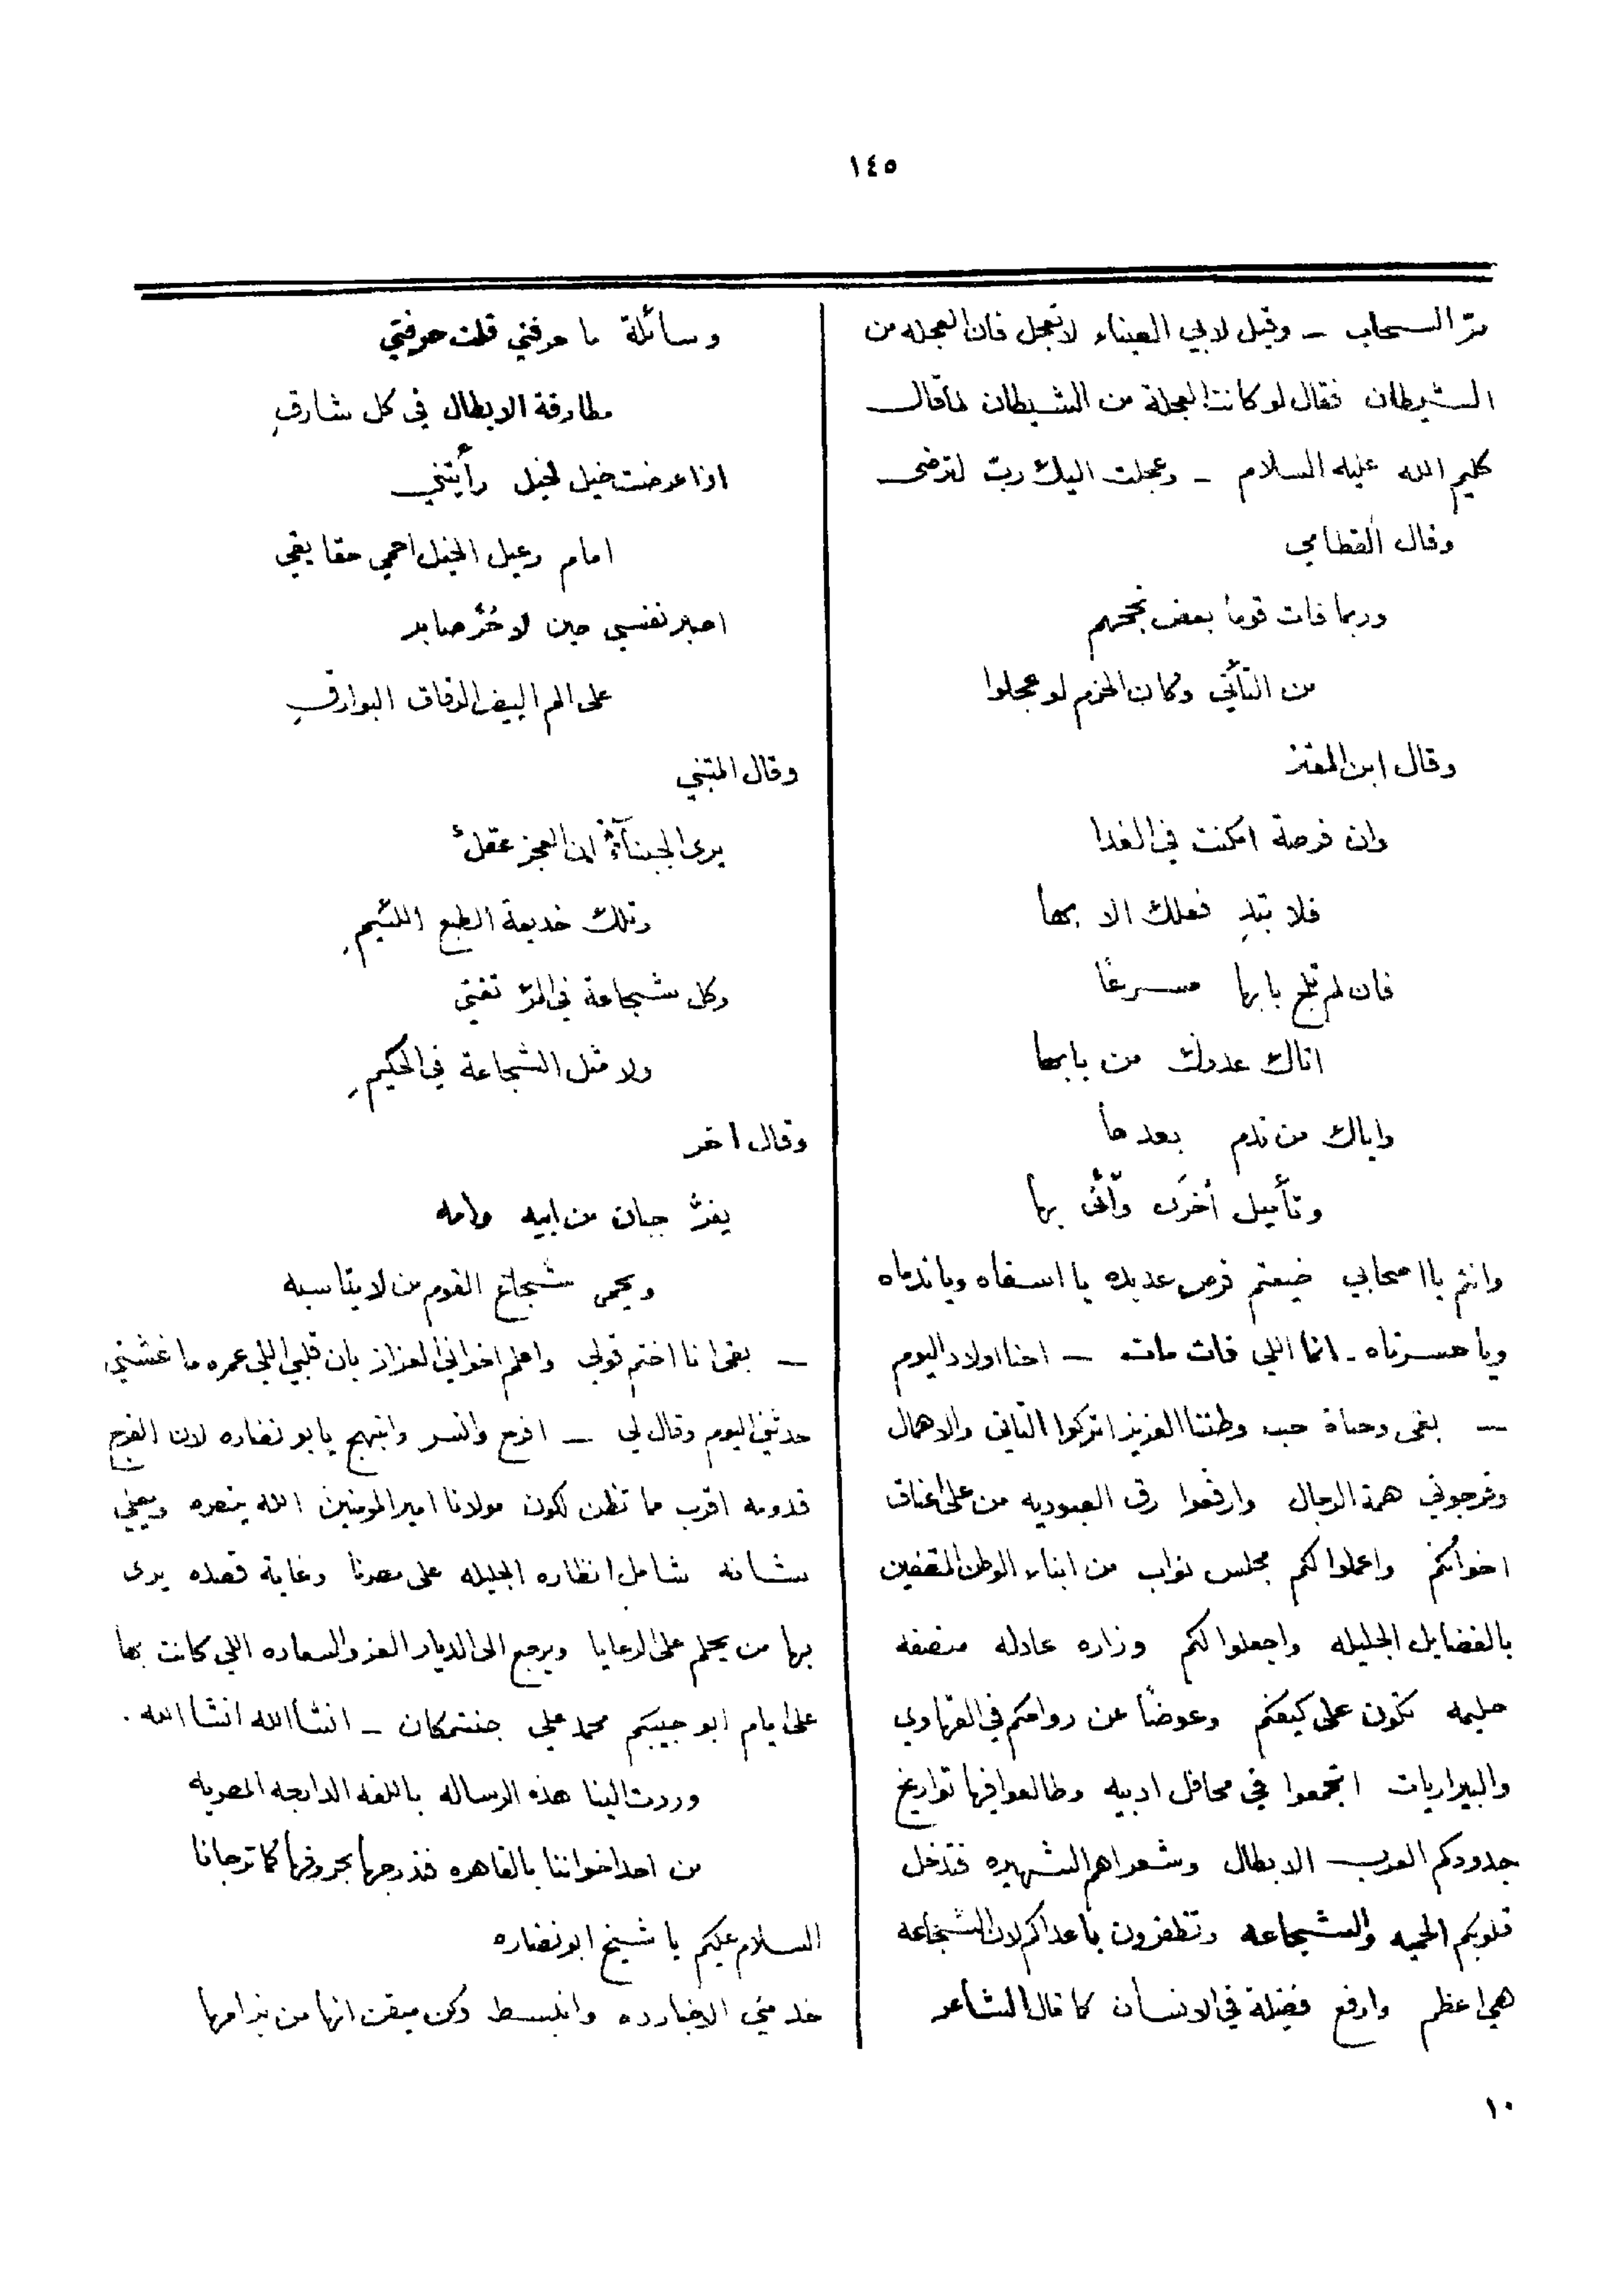 ١٤٥
مرّ السحاب - وقيل لابي العيناء لا تعجل فان العجله من
الشيطان فقال لو كانت العجلة من الشيطان لما قال
كليم الله عليه السلام - وعجلت اليك ربّ لترضى
وقال القطامي
وربما فات قوما بعض نجحهم
من التأنّي وكان الحزم لو عجلوا
وقال ابن المعتز
وان فرصة امكنت في العدا
فلا تبدِ فعلك الا بها
فان لم تلج بابها مسرعًا
اتاك عدوك من بابها
واياك من ندم بعدها
وتأميل أخرَى وأنّى بها
وانتم يا اصحابي ضيعتم فرص عديده يا اسفاه ويا ندماه
ويا حسرتاه - انما اللي فات مات - احنا اولاد اليوم
- بقى وحياة حب وطننا العزيز اتركوا التاني والاهمال
وفرجوني همة الرجال وارفعوا رق العبوديه من على اعناق
اخوانكم واعملوا لكم مجلس نواب من ابناء الوطن المتصفين
بالفضايل الجليله واجعلوا لكم وزاره عادله منصفه
حليمه تكون على كيفكم وعوضًا عن رواحكم في القهاوي
والبيراريات اتجمعوا في محافل ادبيه وطالعوا فيها تواريخ
جدودكم العرب الابطال وشعراهم الشهيره فتدخل
قلوبكم الحميه والشجاعه وتظفرون باعداكم لان الشجاعه
هي اعظم وارفع فضيلة في الانسان كما قال الشاعر
وسائلة ما حرفتي قلت حرفتي
مطارقة الابطال في كل شارقِ
اذا عرضت خيل لخيل رأيتني
امام رعيل الخيل احمي حقايقي
اصبر نفسي حين لا حُرّ صابر
على الم البيض الرقاق البوارقِ
وقال المتنبي
يرى الجبناءُ ان العجز عقلٌ
وتلك خديعة الطبع اللئيمِ
وكل شجاعة في المرّ تغني
ولا مثل الشجاعة في الحكيمِ
وقال اخر
يفرّ جبان من ابيه وامه
ويحمى شجاع القوم من لا يناسبه
- بقى انا اختم قولي واعلم اخواني العزاز بان قلبي اللي عمره ما غشني
حدثني اليوم وقال لي - افرح وانسر وابتهج يا بو نضاره لان الفرج
قدومه اقرب مما تظن لكون مولانا امير المومنين الله ينصره ويعلي
شانه شامل انظاره الجليله على مصرنا وغاية قصده يرى
بها من يحلم على الرعايا ويرجع الى الديار العز والسعاده اللي كانت بها
على ايام ابو حبيبكم محمد علي جنتمكان - انشا الله انشا الله .
وردت الينا هذه الرساله باللغه الدارجه المصريه
من احد اخواننا بالقاهره فندرجها بحروفها كما ترجانا
السلام عليكم يا شيخ ابو نضاره
خد مني الاخبار ده وانبسط وكن ميقن انها من
١٠